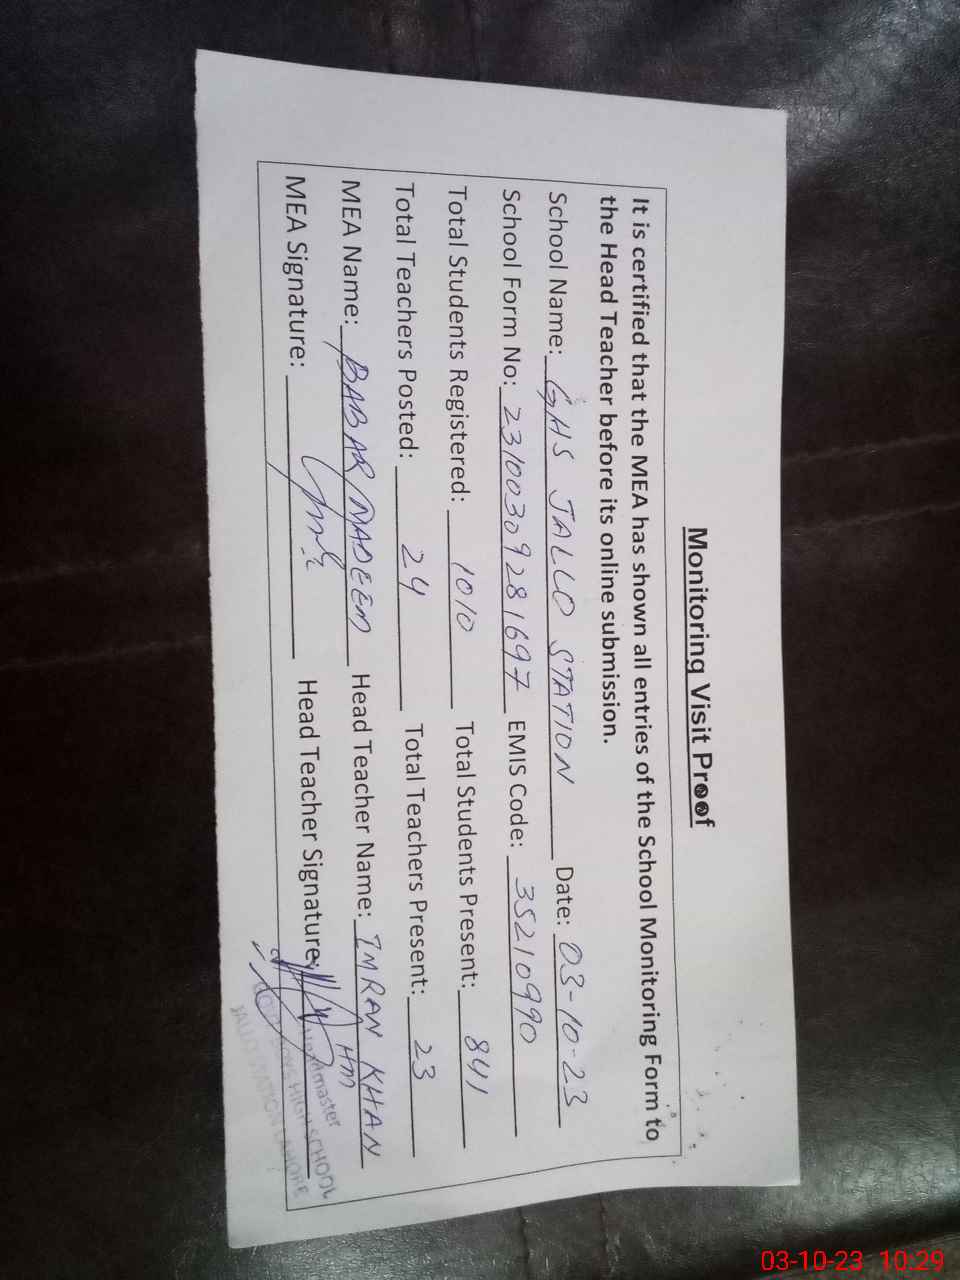 Monitoring Visit Proof
It is certified that the MEA has shown all entries of the School Monitoring Form to
the Head Teacher before its online submission.
School Name: GHS JALLO STATION Date: 03-10-23
School Form No: 23100309281697 EMIS Code: 35210990
Total Students Registered: 1010 Total Students Present: 841
Total Teachers Posted: 24 Total Teachers Present: 23
MEA Name: BABAR NADEEM Head Teacher Name: IMRAN KHAN
HM
MEA Signature: Head Teacher Signature:
Headmaster
GOVT BOYS HIGH SCHOOL
JALLO STATION LAHORE
03-10-23 10:29